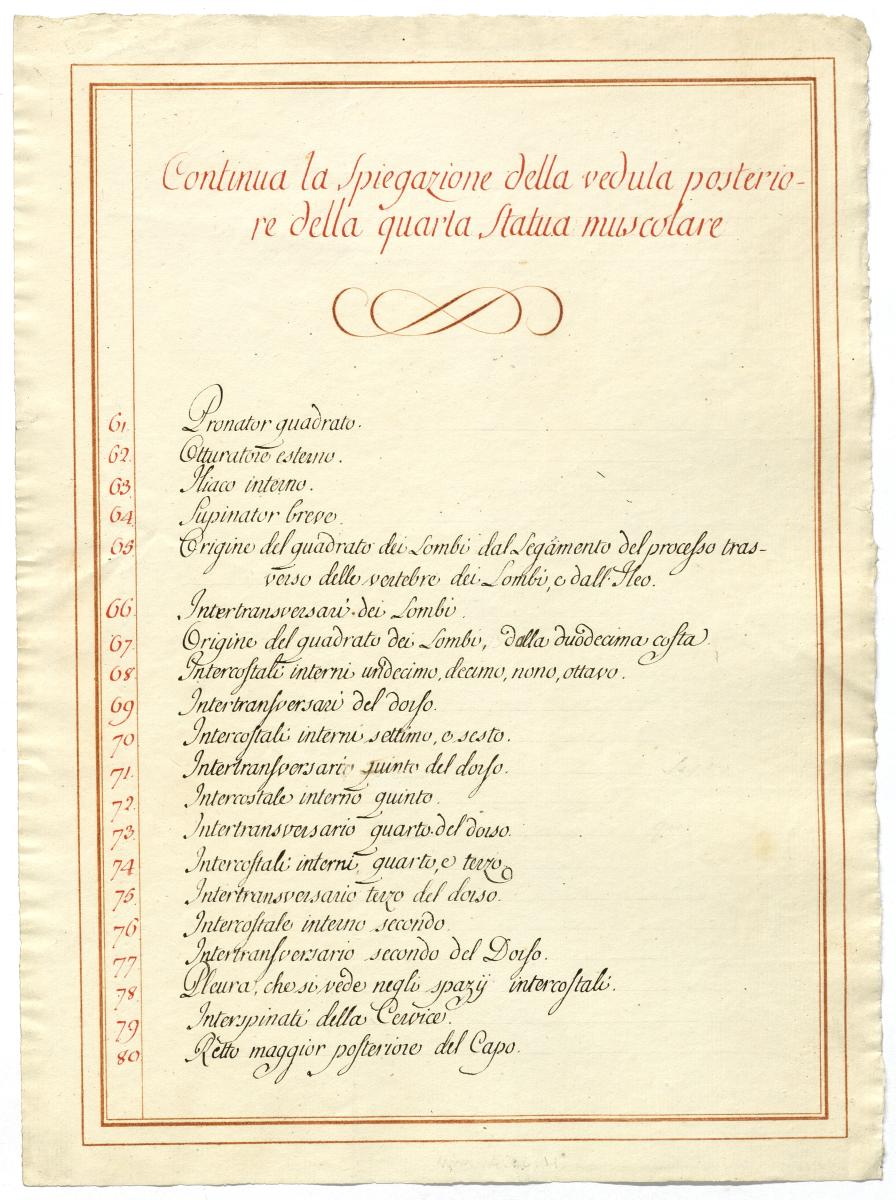 Continua la Spiegazione della veduta posterio-
re della quarta Statua muscolare
61. Pronator quadrato.
62. Otturatore esterno.
63. Iliaco interno.
64. Supinator breve.
65. Origine del quadrato dei Lombi dal Legamento del processo tras-
verso delle vertebre dei Lombi, e dall'Ileo.
66. Intertransversari dei Lombi.
67. Origine del quadrato dei Lombi, dalla duodecima costa.
68. Intercostali interni undecimo, decimo, nono, ottavo.
69 Intertransversari del dorso.
70 Intercostali interni settimo, e sesto.
71. Intertransversario quinto del dorso.
72. Intercostale interno quinto.
73. Intertransversario quarto del dorso.
74 Intercostali interni, quarto, e terzo
75. Intertransversario terzo del dorso.
76 Intercostale interno secondo.
77 Intertransversario secondo del Dorso.
78. Pleura, che si vede negli spazij intercostali.
79 Interspinati della Cervice.
80. Retto maggior posteriore del Capo.